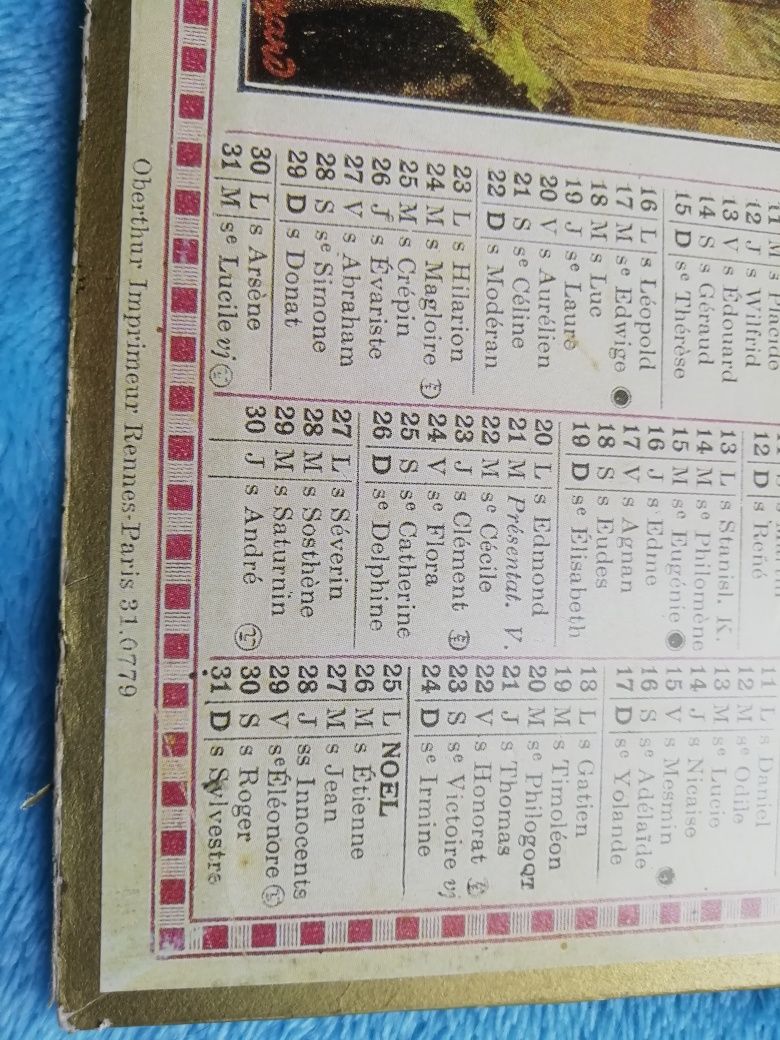 12 J s Wilfrid
13 V s Édouard
14 S s Géraud
15 D se Thérèse
16 L s Léopold
17 M se Edwige
18 M s Luc
19 J se Laure
20 V s Aurélien
21 S se Céline
22 D s Modéran
23 L s Hilarion
24 M s Magloire
25 M s Crépin
26 J s Évariste
27 V s Abraham
28 S se Simone
29 D s Donat
30 L s Arsène
31 M se Lucile vj
12 D s René
13 L s Stanisl. K.
14 M se Philomène
15 M se Eugénie
16 J s Edme
17 V s Agnan
18 S s Eudes
19 D se Élisabeth
20 L s Edmond
21 M Présentat. V.
22 M se Cécile
23 J s Clément
24 V se Flora
25 S se Catherine
26 D se Delphine
27 L s Séverin
28 M s Sosthène
29 M s Saturnin
30 J s André
11 L s Daniel
12 M se Odile
13 M se Lucie
14 J s Nicaise
15 V s Mesmin
16 S se Adélaïde
17 D se Yolande
18 L s Gatien
19 M s Timoléon
20 M se Philogo QT
21 J s Thomas
22 V s Honorat
23 S se Victoire vj
24 D se Irmine
25 L NOEL
26 M s Étienne
27 M s Jean
28 J ss Innocents
29 V se Éléonore
30 S s Roger
31 D s Sylvestre
Oberthur Imprimeur Rennes-Paris 31.0779